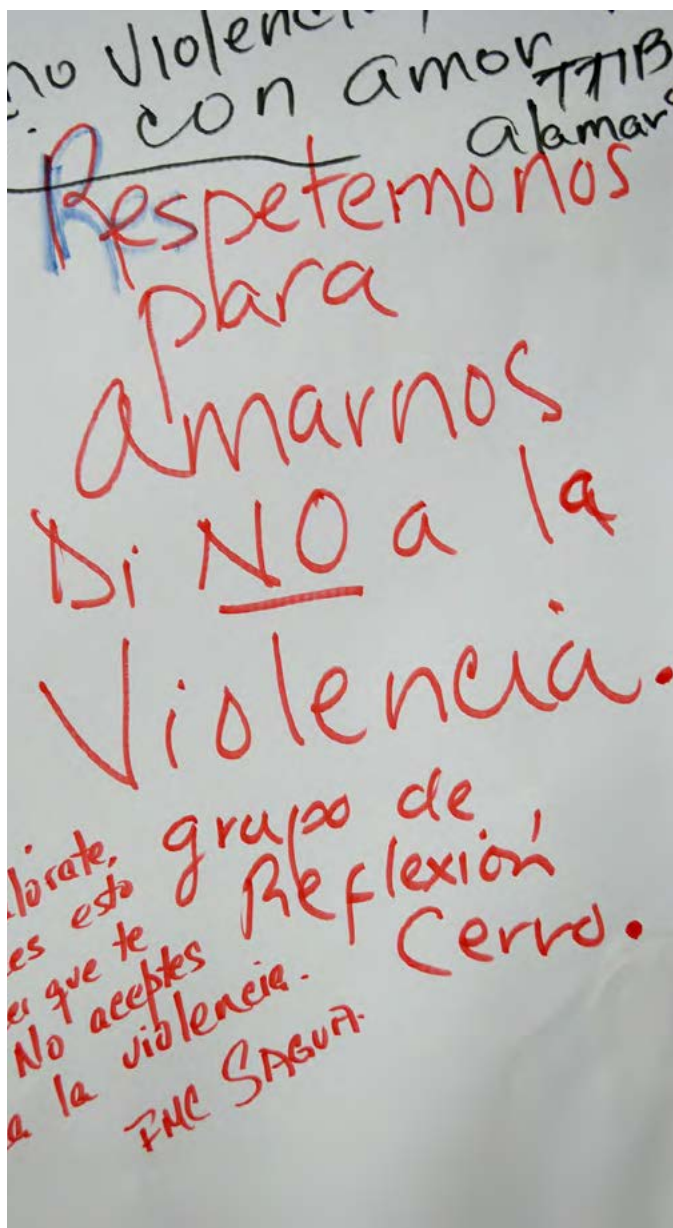 no violencia,
con amor
TTIB
alamar
Respetemonos
para
amarnos
Di NO a la
Violencia.
grupo de
Reflexión
Cerro.
lórate,
es esto
que te
No aceptes
a la violencia.
FMC SAGUA.